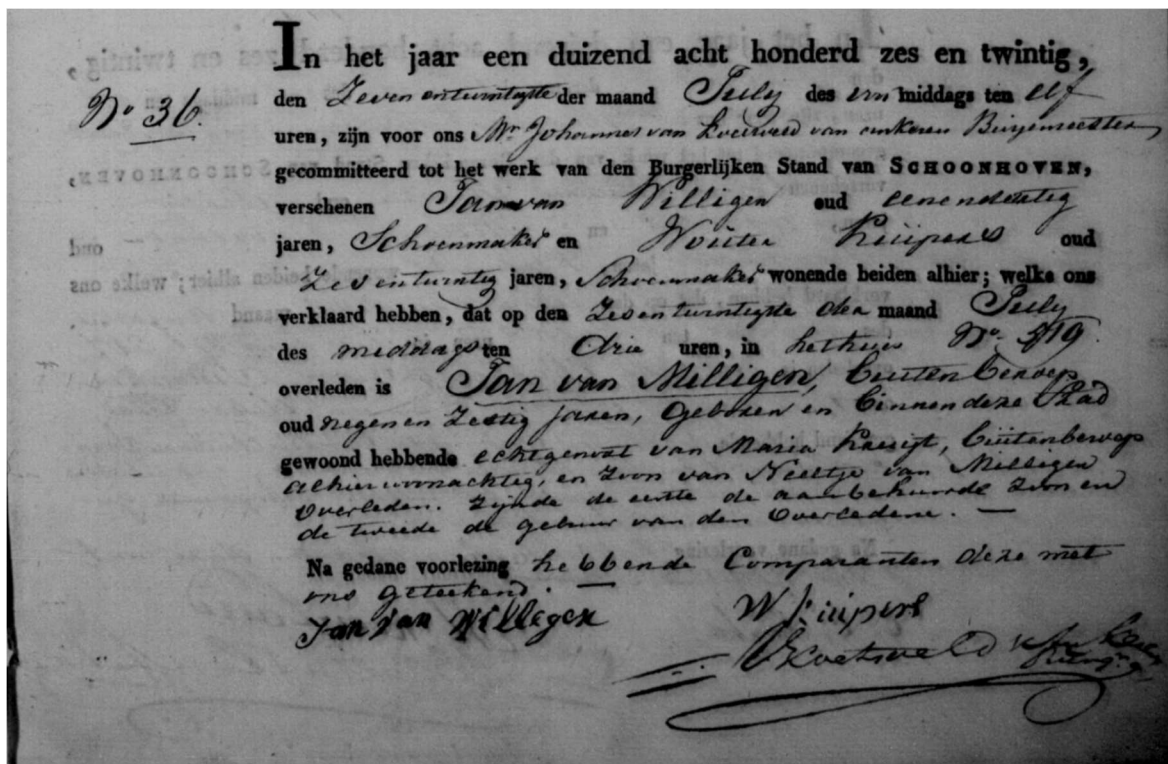 In het jaar een duizend acht honderd zes en twintig,
No 36.
den Zevenentwintigste der maand July des middags ten elf
uren, zijn voor ons Mr. Johannes van Burgemeester,
gecommitteerd tot het werk van den Burgerlijken Stand van SCHOONHOVEN,
verschenen Jan van Willigen oud eenendertig
jaren, Schoenmaker en Wouter Kuipers oud
jaren, Schoenmaker wonende beiden alhier; welke ons
verklaard hebben, dat op den der maand July
des middags ten drie uren, in het huis No.
overleden is Jan van Milligen, buiten beroep
oud negen en Zestig jaren, Geboren en binnen deze Stad
gewoond hebbende echtgenoot van Maria buiten beroep
alhier woonachtig, en Zoon van Neeltje van Milligen
overleden. Zijnde de eerste de aanbehuwde Zoon en
de tweede de gebuur van den Overledene. —
Na gedane voorlezing hebbende Comparanten deze met
ons geteekend. —
Jan van Willegen
W Kuipers